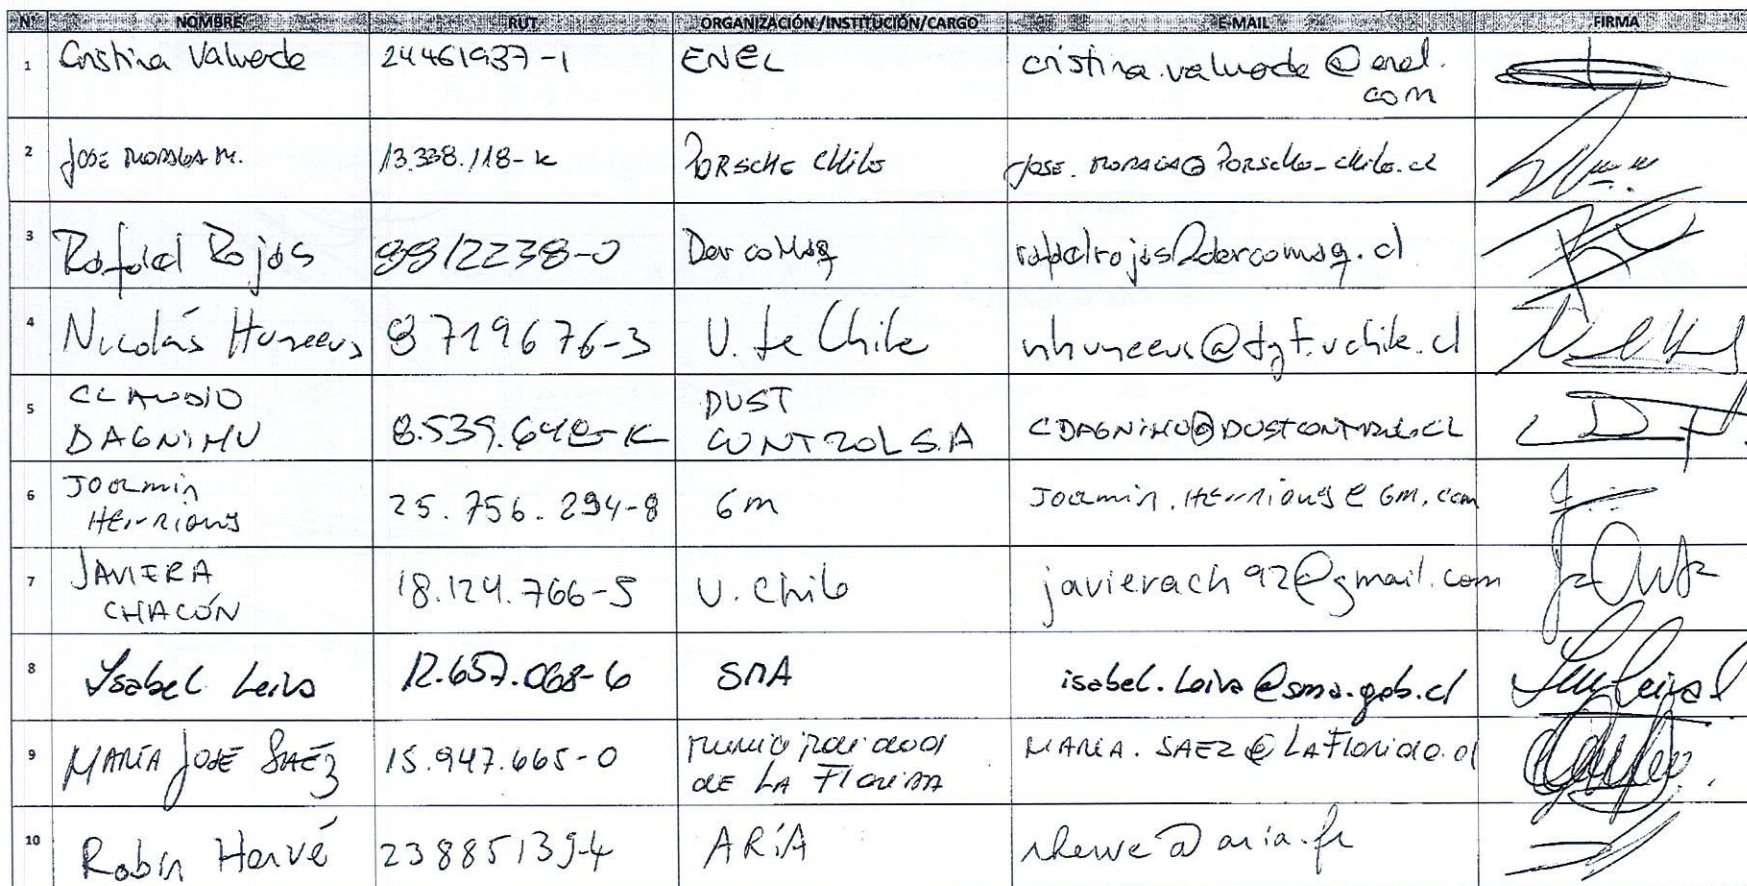 N° NOMBRE RUT ORGANIZACIÓN /INSTITUCIÓN/CARGO E-MAIL FIRMA
1 Cristina Valverde 24461937-1 ENEL cristina.valverde@enel.
com
2 JOSE MORAGA M. 13.338.118-K PORSCHE Chile JOSE.MORAGA@PORSCHE-chile.cl
3 Rafael Rojas 9812238-0 DercoMaq rafaelrojas@dercomaq.cl
4 Nicolás Huneeus 8719676-3 U. de Chile nhuneeus@dgf.uchile.cl
5 CLAUDIO DUST
DAGNINO 8.539.648-K CONTROL S.A CDAGNINO@DUSTCONTROL.CL
6 25.756.294-8 GM
7 JAVIERA
CHACÓN 18.124.766-5 U. Chile javierach92@gmail.com
8 Isabel Leiva 12.657.068-6 SMA isabel.leiva@sma.gob.cl
9 MARIA JOSE SAEZ 15.947.665-0 Municipalidad MARIA.SAEZ@LAFlorida.cl
de LA Florida
10 Robin Hervé 23885139-4 ARIA rherve@aria.fr